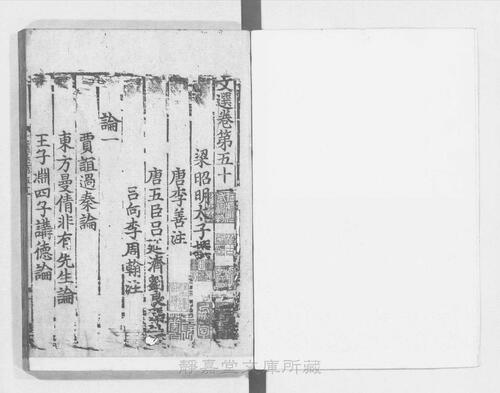 文選卷第五十
梁昭明太子撰
唐李善注
唐五臣呂延濟劉良張銑
呂向李周翰注
論一
賈誼過秦論
東方曼倩非有先生論
王子淵四子講德論
靜嘉堂文庫所藏